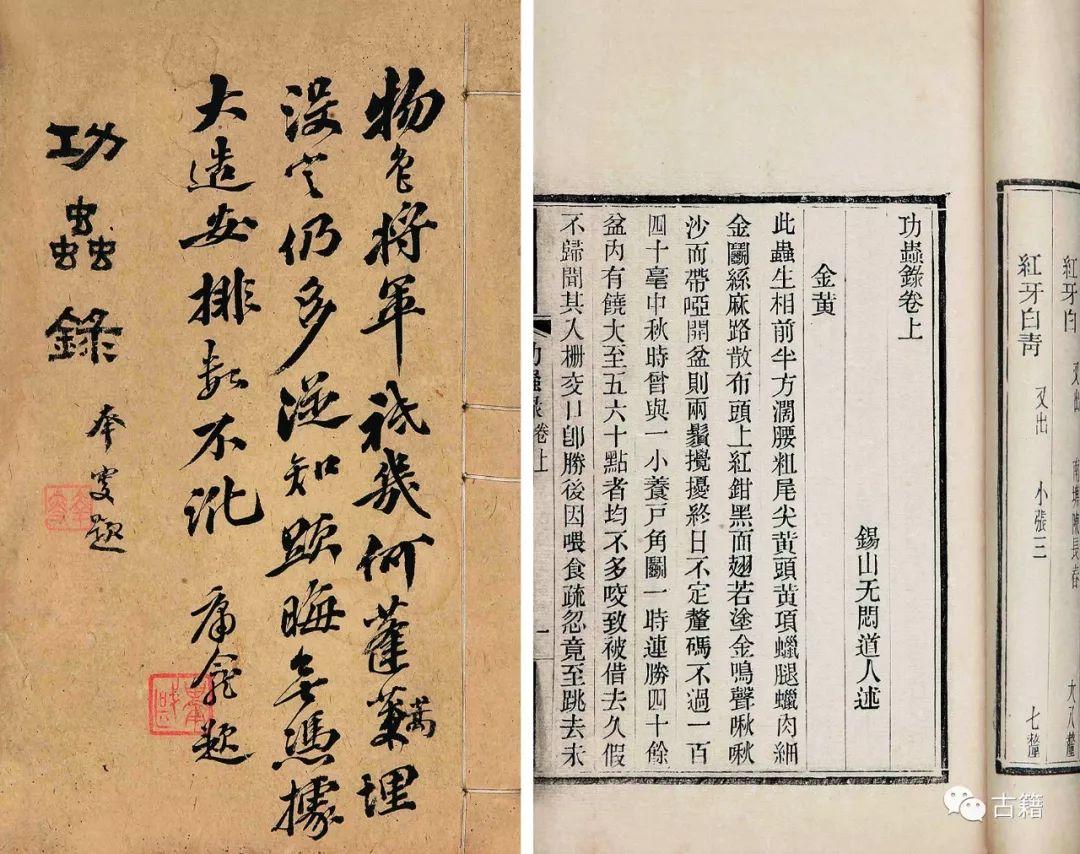 物色將軍祇幾何蓬蒿埋
没定仍多知顯晦無憑據
大造安排數不訛
題
功蟲錄
題
紅牙白 又出 陳長春 大八釐
紅牙白青 又出 小張三 七釐
功蟲錄卷上
錫山无悶道人述
金黄
此蟲生相前半方濶腰粗尾尖黄頭黄項蠟腿蠟肉細
金鬭絲麻路散布頭上紅鉗黑面翅若塗金鳴聲啾啾
沙而帶啞開盆則兩鬚攪擾終日不定釐碼不過一百
四十毫中秋時曾與一小養戸角鬭一時連勝四十餘
盆内有饒大至五六十點者均不多咬致被借去久假
不歸聞其入柵交口卽勝後因喂食疏忽竟至跳去未
功蟲錄卷上
一
古籍